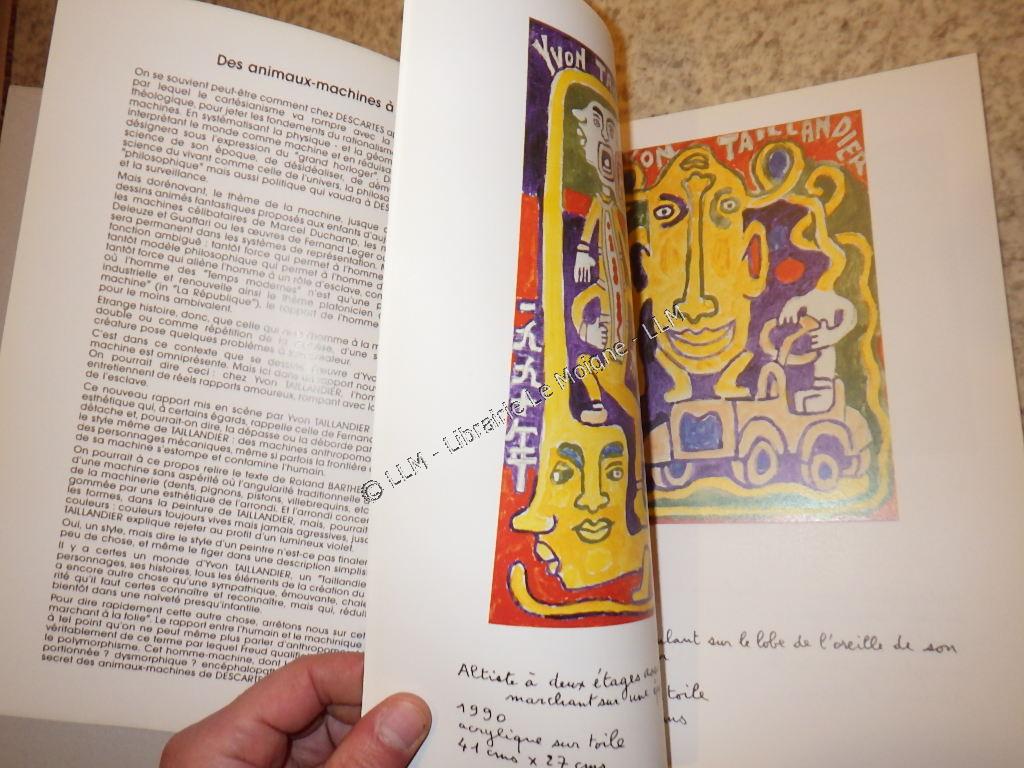 Des animaux-machines à
On se souvient peut-être comment chez DESCARTES
par lequel le cartésianisme va rompre avec la
théologique, pour jeter les fondements du rationalisme
machines. En systématisant la physique - et la
interprétant le monde comme machine et en
désignera sous l'expression du "grand horloger",
science de son époque, de désidéaliser, de
science du vivant comme celle de l'univers, la
"philosophique" mais aussi politique qui vaudra à
et la surveillance.
Mais dorénavant, le thème de la machine, jusque
dessins animés fantastiques proposés aux enfants
les machines célibataires de Marcel Duchamp, les
Deleuze et Guattari ou les œuvres de Fernand Léger
sera permanent dans les systèmes de représentation.
fonction ambiguë : tantôt force qui permet à l'homme
tantôt modèle philosophique qui permet à l'homme
tantôt force qui aliène l'homme à un rôle d'esclave,
où l'homme des "Temps modernes" n'est qu'une
industrielle et renouvelle ainsi le thème platonicien
machine" (in "La République"), le rapport de l'homme
pour le moins ambivalent.
Etrange histoire, donc, que celle qui l'homme à la
double ou comme répétition de d'une
créature pose quelques problèmes à son créateur.
C'est dans ce contexte que se l'œuvre
machine est omniprésente. Mais ici dans un rapport
On pourrait dire ceci : chez Yvon TAILLANDIER,
entretiennent de réels rapports amoureux, rompant avec
de l'esclave.
Ce nouveau rapport mis en scène par Yvon TAILLANDIER
esthétique qui, à certains égards, rappelle celle de
détache et, pourrait-on dire, la dépasse ou la déborde
style même de TAILLANDIER : des machines
des personnages mécaniques, même si parfois la frontière
de sa machine s'estompe et contamine l'humain.
On pourrait à ce propos relire le texte de Roland
d'une machine sans aspérité où l'angularité traditionnelle
de la machinerie (dents, pignons, pistons, villebrequins,
gommée par une esthétique de l'arrondi. Et l'arrondi
les formes, dans la peinture de TAILLANDIER, mais,
couleurs : couleurs toujours vives mais jamais agressives,
TAILLANDIER explique rejeter au profit d'un lumineux violet.
Oui, un style, mais dire le style d'un peintre n'est-ce pas
peu de chose, et même le figer dans une description
Il y a certes un monde d'Yvon TAILLANDIER, un
personnages, ses histoires, tous les éléments de la création
a encore autre chose qu'une sympathique, émouvante,
rité qu'il faut certes connaître et reconnaître, mais qui,
bientôt dans une naïveté presqu'infantile.
Pour dire rapidement cette autre chose, arrêtons nous sur
marchant à la folie". Le rapport entre l'humain et le
à tel point qu'on ne peut même plus parler
véritablement de ce terme par lequel Freud
le polymorphisme. Cet homme-machine, dont
portionnée ? dysmorphique ?
secret des animaux-machines de
YVON
一九九〇年
Altiste à deux étages
marchant sur une
1990
acrylique sur toile
41 cms x 27 cms
TAILLANDIER
sur le lobe de l'oreille de son
toile
© LLM - Librairie Le Moiane - LLM